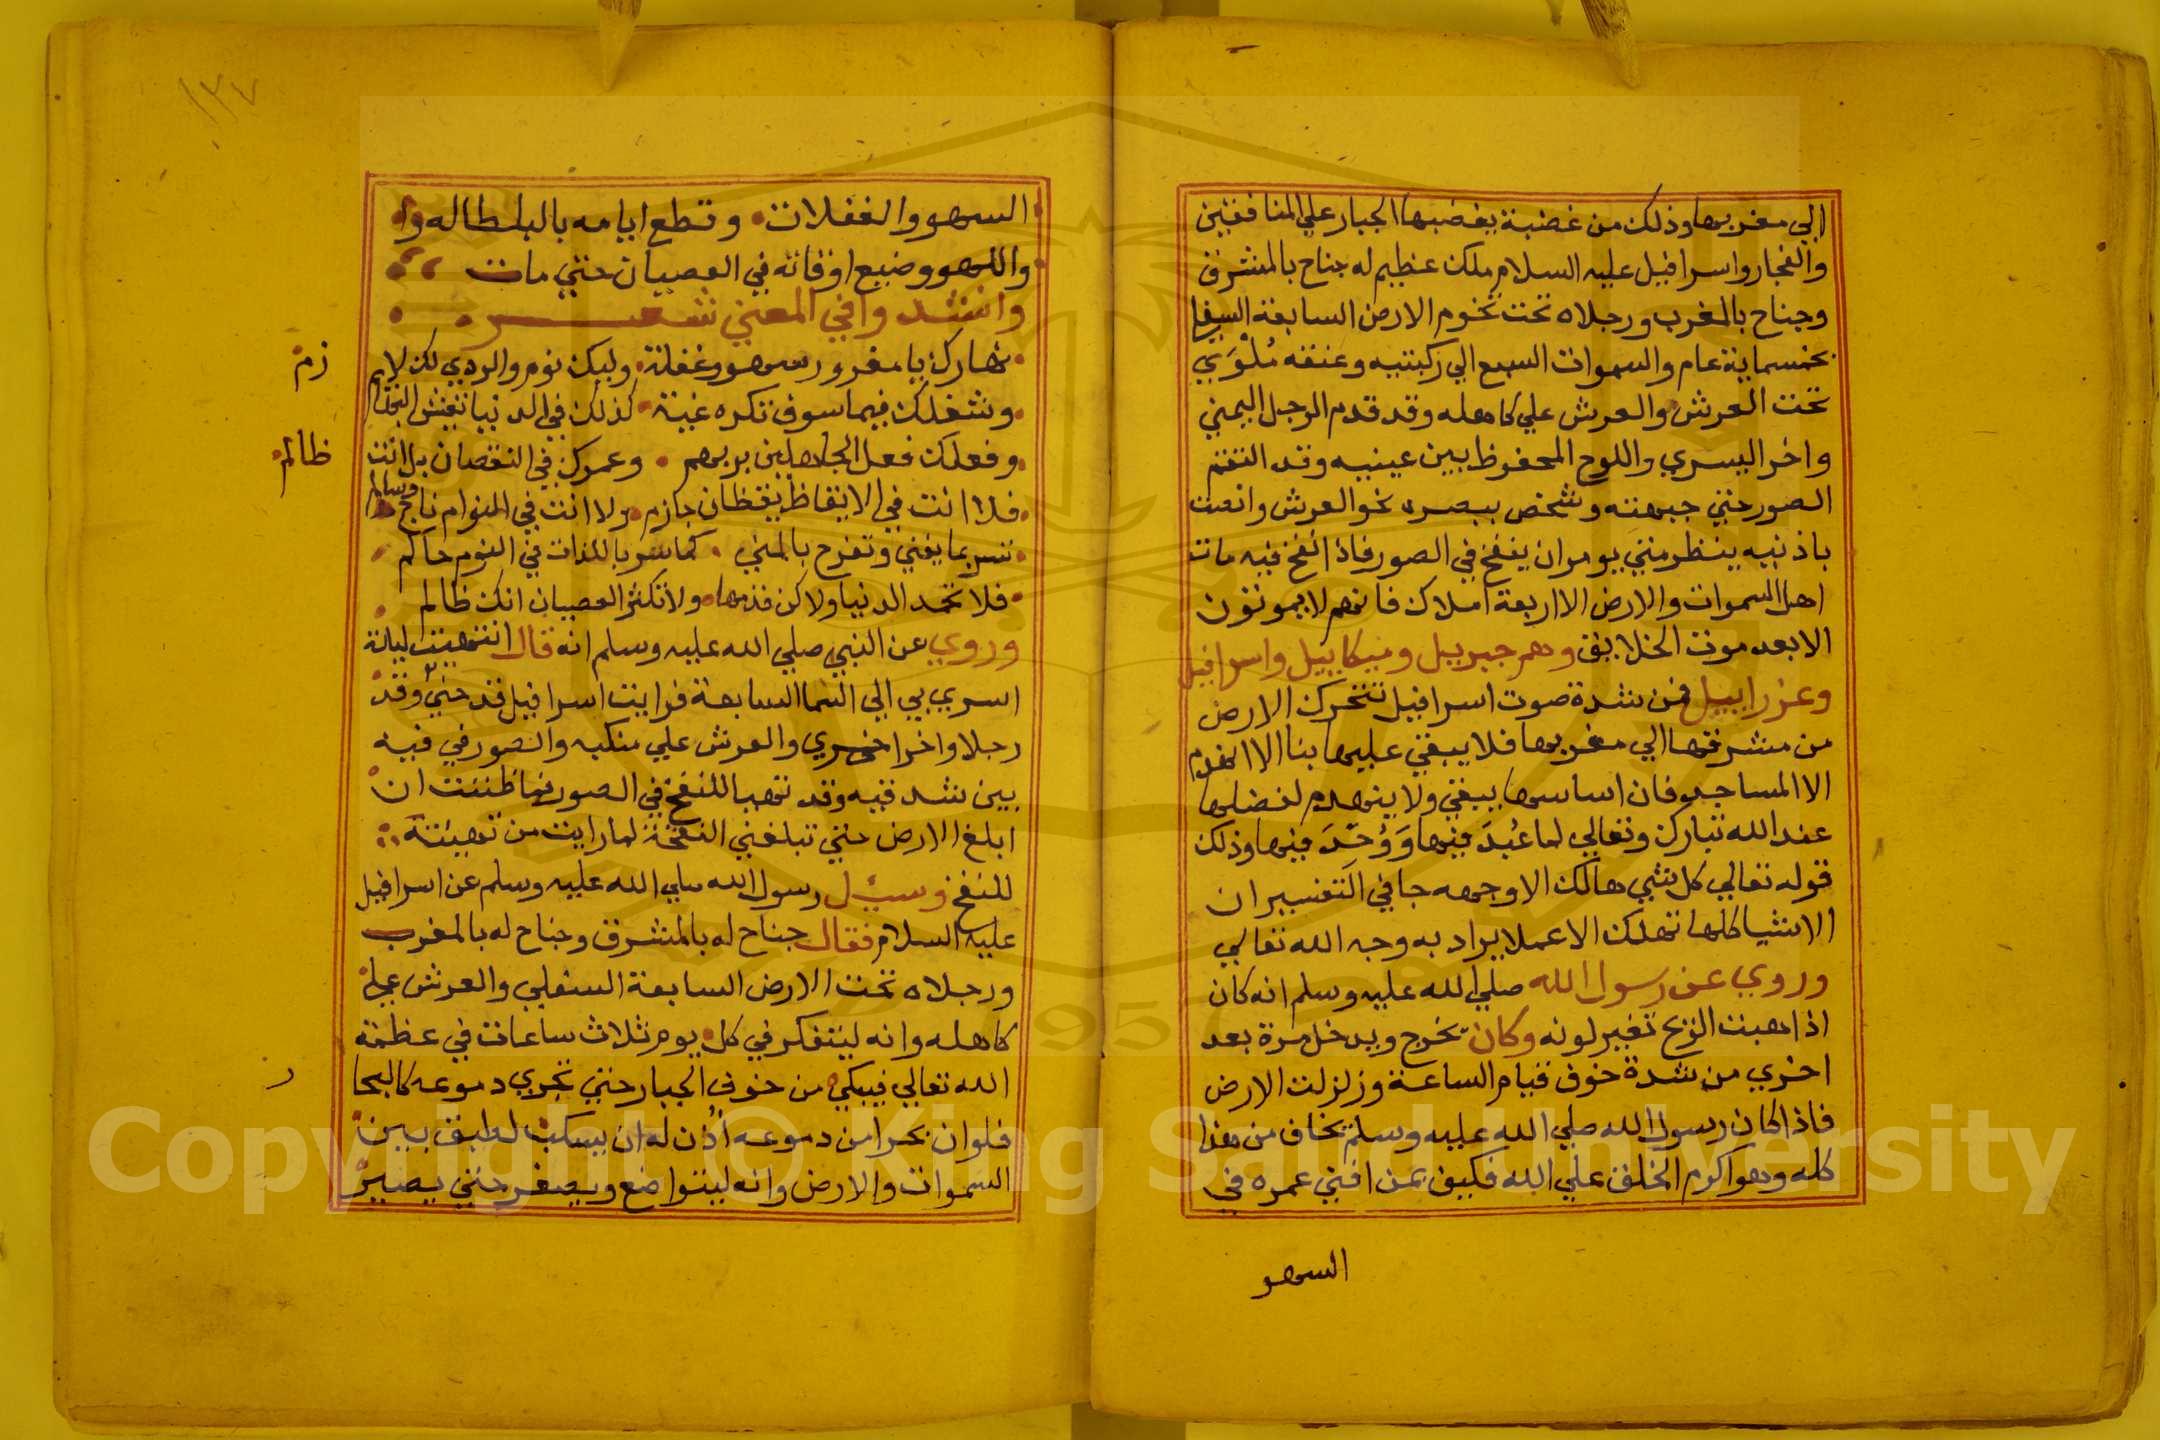 الي مغربها وذلك من غضبة يغضبها الجبار علي المنافقين
والفجار واسرافيل عليه السلام ملك عظيم له جناح بالمشرق
وجناح بالمغرب ورجلاه تحت تخوم الارض السابعة السفلا
بخمسماية عام والسموات السبع الي ركبتيه وعنقه ملوي
تحت العرش والعرش علي كاهله وقد قدم الرجل اليمني
واخر اليسري واللوح المحفوظ بين عينيه وقد التقم
الصور حني جبهته وشخص ببصره نحو العرش وانصت
باذنيه ينظر متي يومر ان ينفخ في الصور فاذا نفخ فيه مات
اهل السموات والارض الا اربعة املاك فانهم لا يموتون
الا بعد موت الخلايق وهم جبرييل وميكاييل واسرافيل
وعزراييل فمن شدة صوت اسرافيل تتحرك الارض
من مشرقها الي مغربها فلا يبقي عليها بنا الا انهدم
الا المساجد فان اساسها يبقي ولا ينهدم لفضلها
عند الله تبارك وتعالي لما عُبدَ فيها وَوُحّدَ فيها وذلك
قوله تعالي كل شي هالك الا وجهه جا في التفسير ان
الاشيا كلها تهلك الا عملا يراد به وجه الله تعالي
وروي عن رسول الله صلي الله عليه وسلم انه كان
اذا هبت الريح تغير لونه وكان يخرج ويدخل مرة بعد
اخري من شدة خوف قيام الساعة وزلزلت الارض
فاذا كان رسول الله صلي الله عليه وسلم يخاف من هذا
كله وهو اكرم الخلق علي الله فكيف بمن افني عمره في
السهو
١٣٧
السهو والغفلات وقطع ايامه بالبطاله وا
واللهو وضيع اوقاته في العصيان حتي مات
وانشدوا في المعني شعر
نهارك يا مغرور سهو وغفلة وليلك نوم والردي لك لازم
وشغلك فيما سوف تكره غبة كذلك في الدنيا تعيش البهايم
وفعلك فعل الجاهلين بربهم وعمرك في النقصان بل انت
ظالم
فلا انت في الايقاظ يقظان جازم ولا انت في النوام ناج وسالم
تسر بما يفني وتفرح بالمني كما سر باللذات في النوم حالم
فلا تحمد الدنيا ولاكن فذمها ولا تكثر العصيان انك ظالم
وروي عن النبي صلي الله عليه وسلم انه قال انتهيت ليلة
اسري بي الي السما السابعة فرايت اسرافيل قد حني وقد
رجلا واخر اخري والعرش علي منكبه والصور في فيه
بين شدقيه وقد تهيا للنفخ في الصور فما ظننت ان
ابلغ الارض حتي تبلغني النفخة لما رايت من تهيئته
للنفخ وسيل رسول الله صلي الله عليه وسلم عن اسرافيل
عليه السلام فقال جناح له بالمشرق وجناح له بالمغرب
ورجلاه تحت الارض السابعة السفلي والعرش علي
كاهله وانه ليتفكر في كل يوم ثلاث ساعات في عظمة
الله تعالي فيبكي من خوف الجبار حتي تجري دموعه كالبحا
ر
فلو ان بحرا من دموعه اُذن له ان يسكب لطبق بين
السموات والارض وانه ليتواضع ويصغر حتي يصير
Copyright © King Saud University
1957